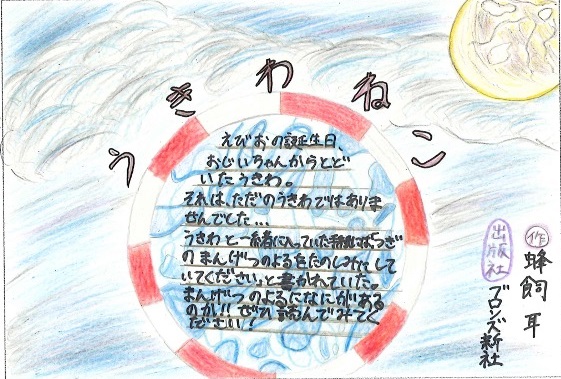 うきわねこ
えびおの誕生日、
おじいちゃんからとど
いたうきわ。
それは、ただのうきわではありま
せんでした…
うきわと一緒に入っていた手紙には、「つぎ
のまんげつのよるをたのしみにして
いてください。」と書かれていた。
まんげつのよるになにがある
のか!! ぜひ読んでみてく
ださい!
作 蜂飼 耳
出版社 ブロンズ新社